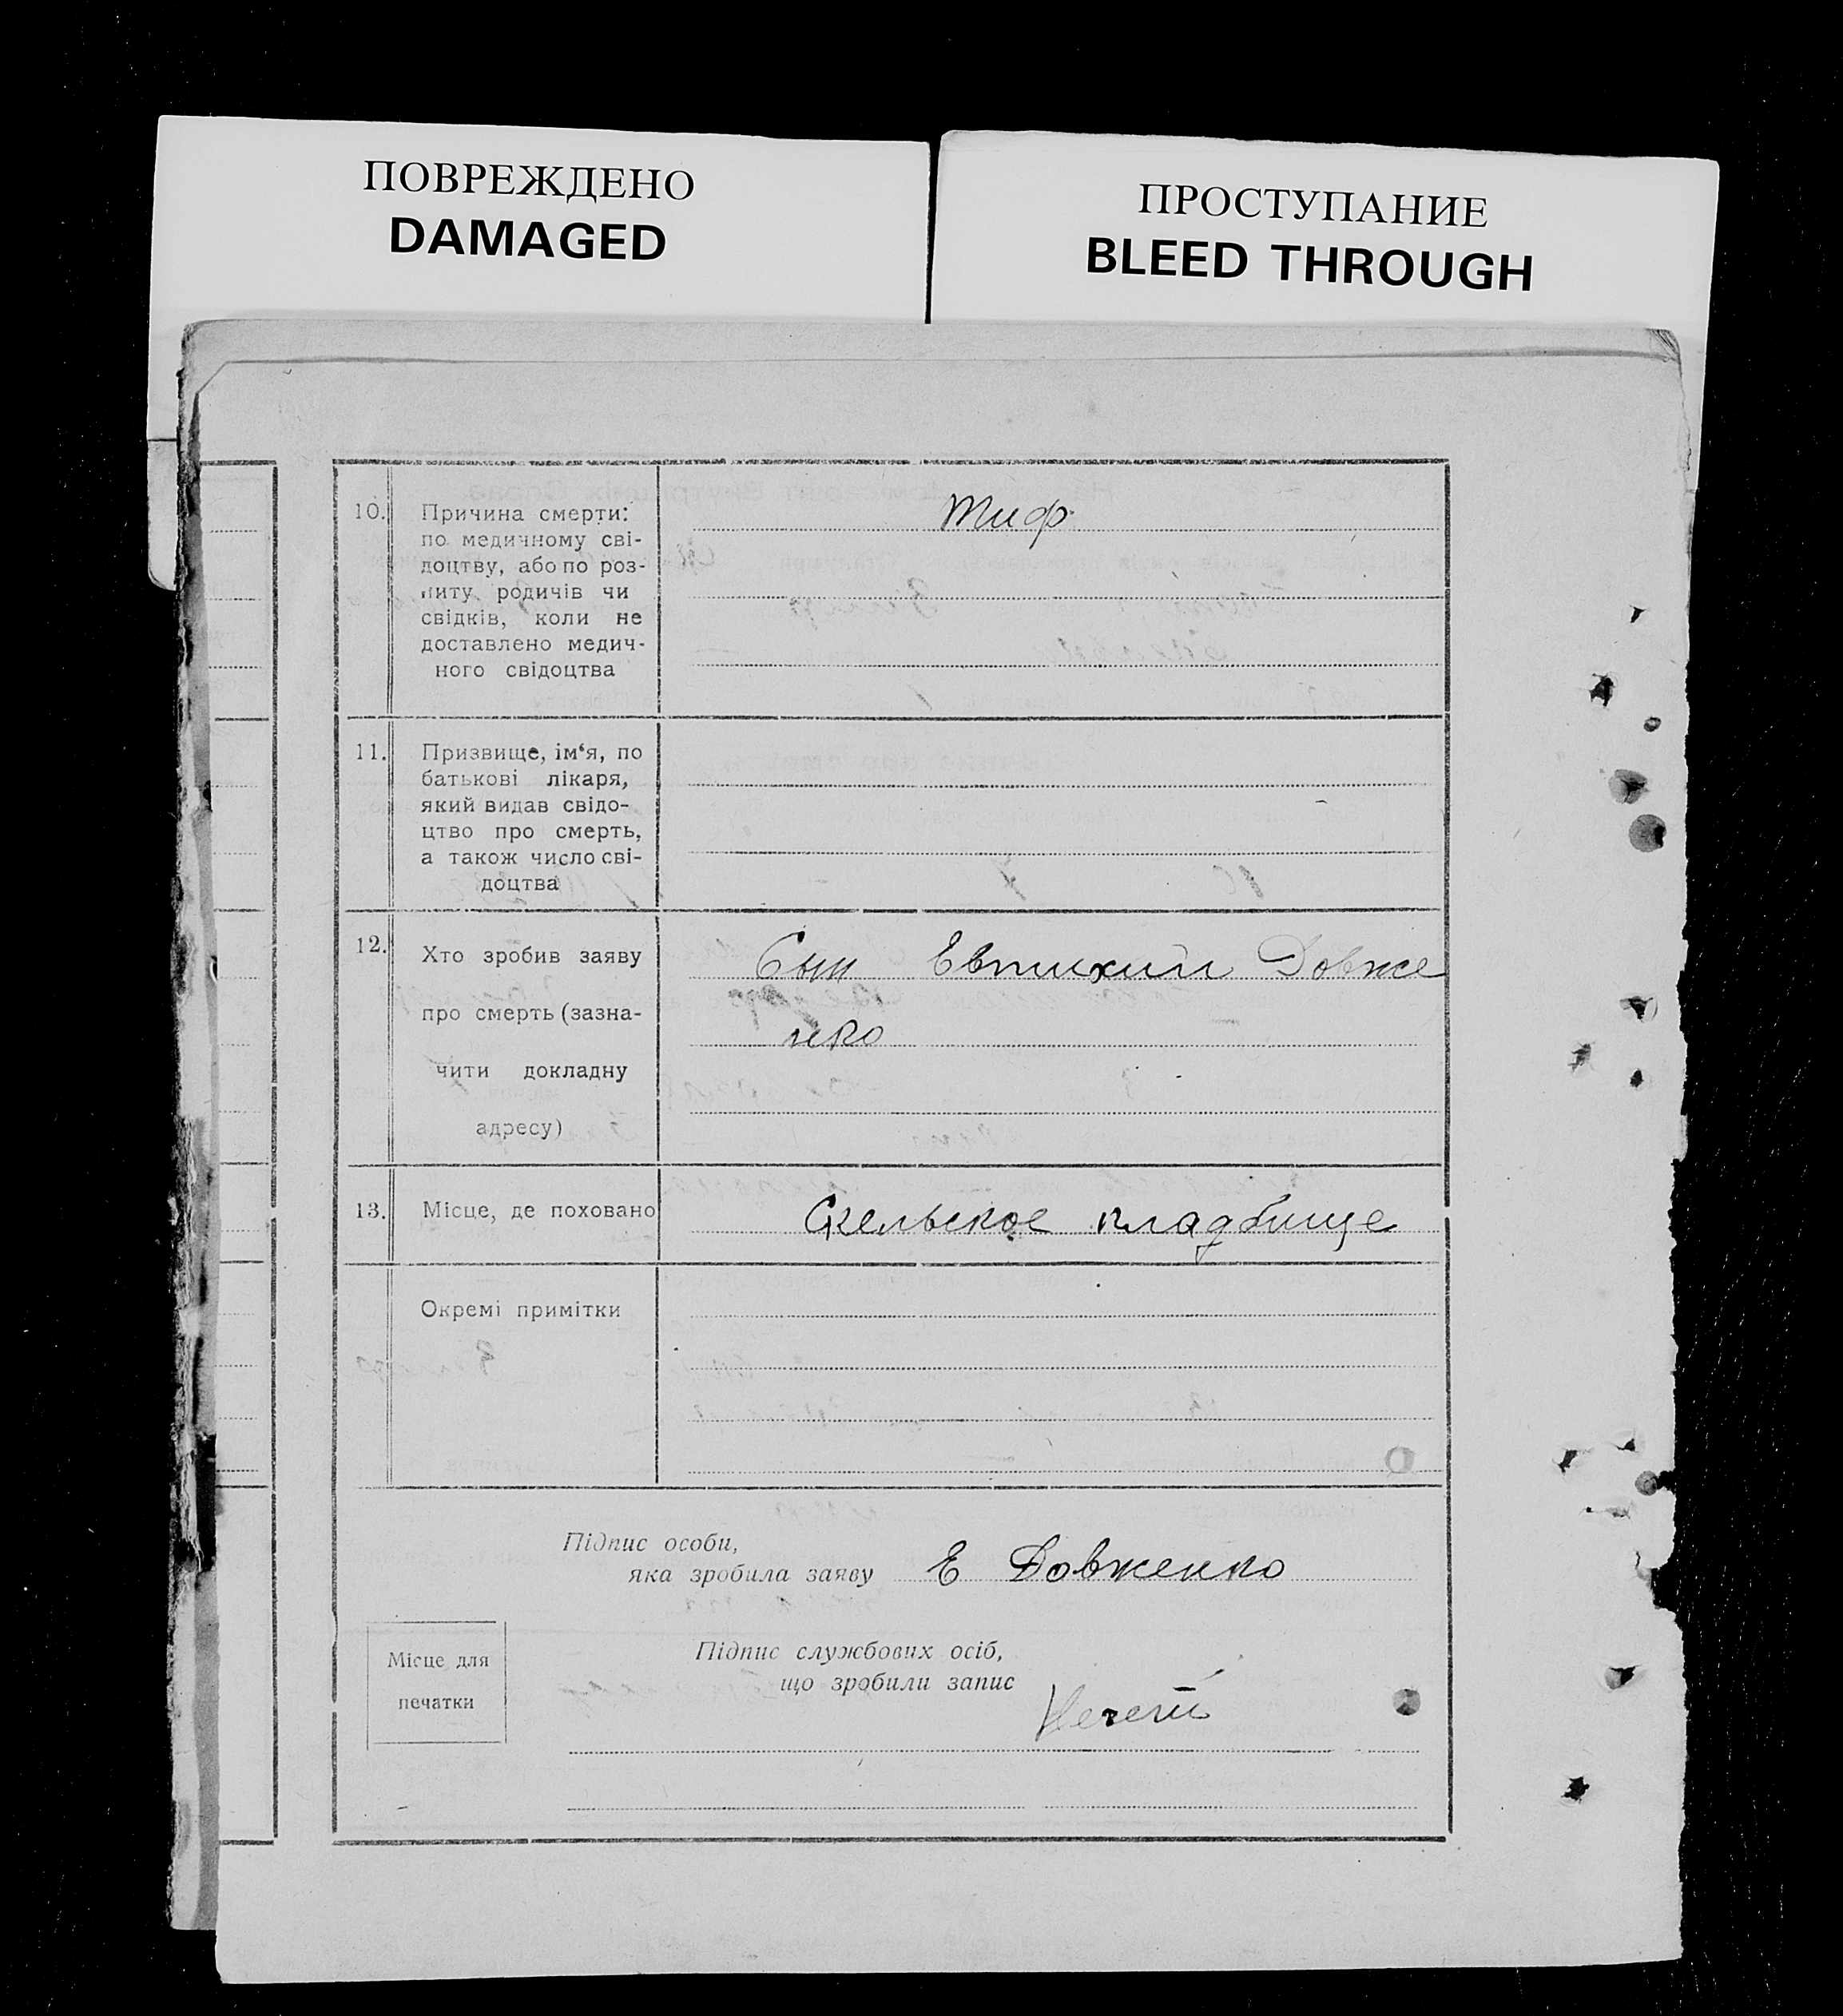 ПОВРЕЖДЕНО
DAMAGED
ПРОСТУПАНИЕ
BLEED THROUGH
10. Причина смерти: Тиф
по медичному сві-
доцтву, або по роз-
питу родичів чи
свідків, коли не
доставлено медич-
ного свідоцтва
11. Призвище, ім‘я, по
батькові лікаря,
який видав свідо-
цтво про смерть,
а також число сві-
доцтва
12. Хто зробив заяву Сын Евтихий Довже
про смерть (зазна-
нко
чити докладну
адресу)
13. Місце, де поховано кладбище
Окремі примітки
Підпис особи,
яка зробила заяву Е Довженко
Підпис службових осіб,
що зробили запис
Місце для
печатки